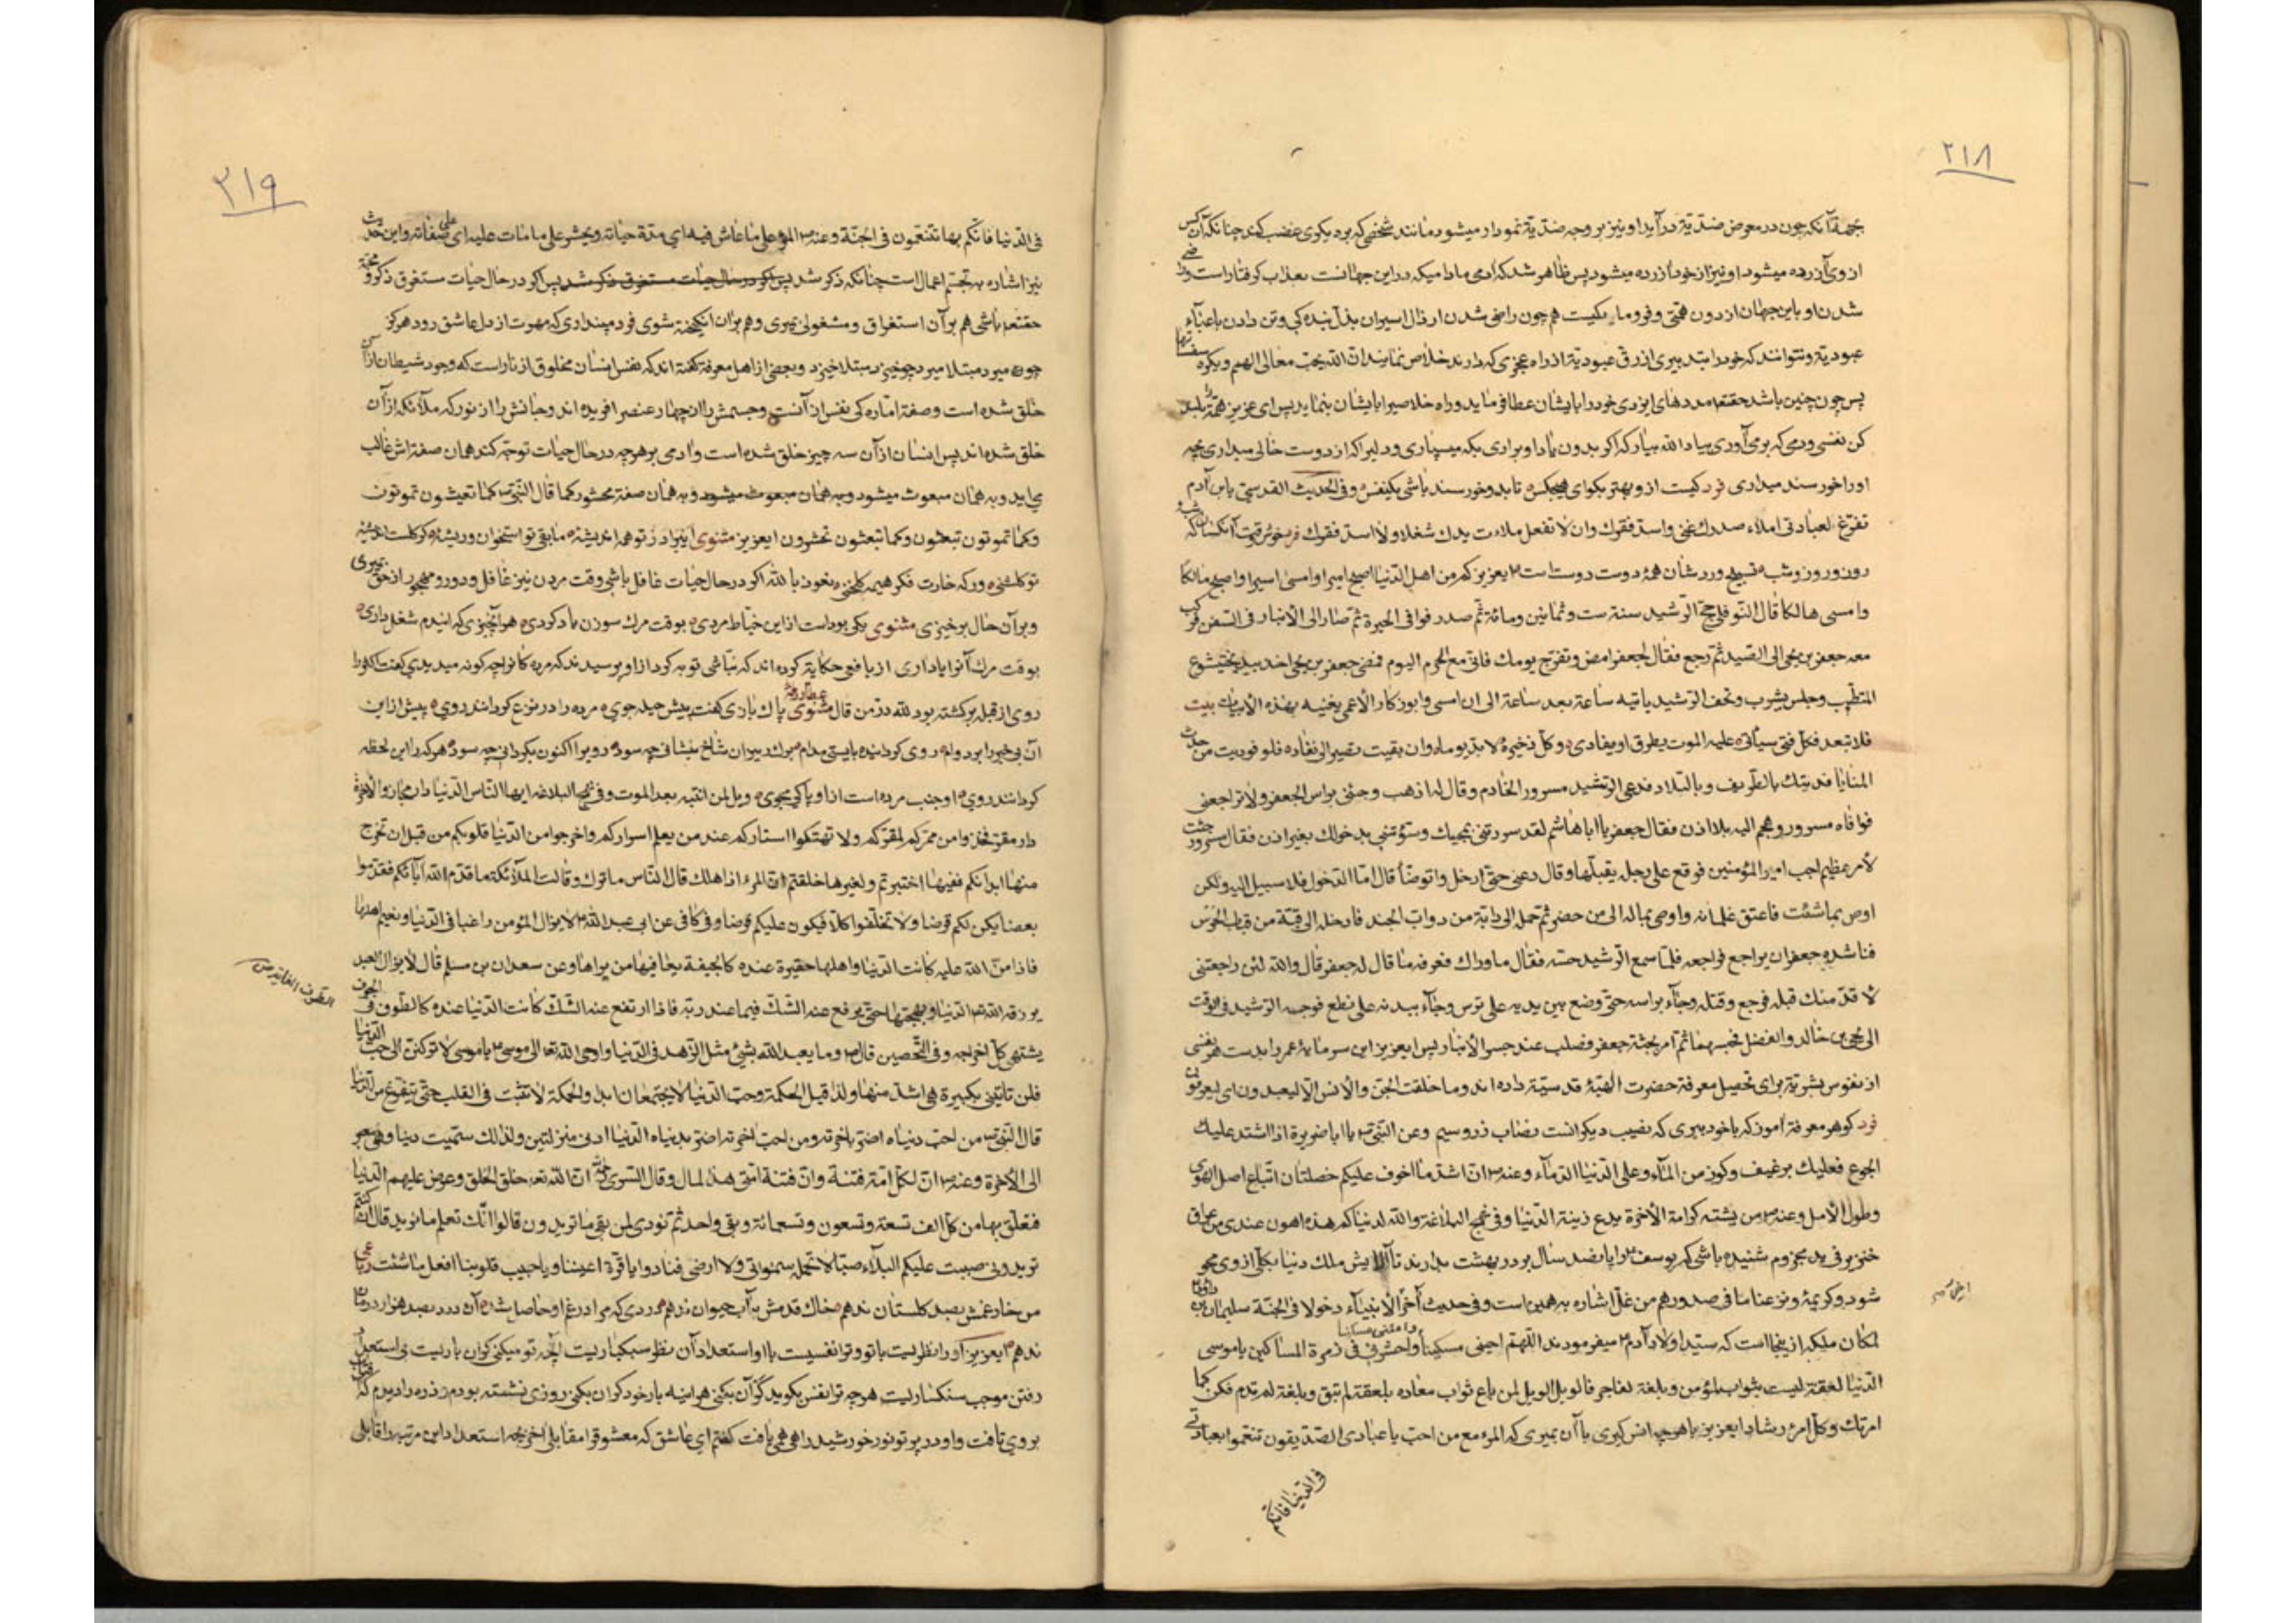 ۲۱۸
بجهة آنکه چون در معرض ضدّیة درآید او نیز بر وجه ضدّیة نمودار میشود مانند شخصی که بر دیکری غضب کند چنانکه آن کس
از وی آزرده میشود او نیز از خود آزرده میشود پس ظاهر شد که آدمی مادامیکه در این جهانست بعذاب کرفتار است
شدن او باین جهان از دون همّتی و فرومایکیست هم چون راضی شدن ارذال اسیران بذلّ بندکی و تن دادن باعباء
عبودیّة و نتوانند که خود را بتدبیری از رقّ عبودیّة از راه عجزی که دارند خلاص نمایند انّ الله یحبّ معالی الهمم و یکره
پس چون چنین باشد حقتعالی مددهای ایزدی خود را بایشان عطا فرماید و راه خلاص را بایشان بنماید پس ای عزیز همّة بلند
کن نفسی و دمی که برمی‌آوری بیاد الله بیار که اکر بدون یاد او برآری بکه میسپاری و دلیرا که از دوست خالی میداری بچه
او را خورسند میداری فرد کیست ازو بهتر بکو ای هیچکس تا بدو خورسند باشی یکنفس و فی الحدیث القدسی یابن آدم
تفرّغ لعبادتی املاء صدرک غنی و اسدّ فقرک و ان لا تفعل ملاءت یدک شغلا و لا اسدّ فقرک فرد خوش وقت آنکسان که
روز و روز و شب تسبیح و وردشان همه دوست دوست است ایعزیز کم من اهل الدّنیا اصبح امیرا و امسی اسیرا و اصبح مالکا
و امسی هالکا قال النّوفلی حجّ الرّشید سنة ستّ و ثمانین و مائة ثمّ صدر فوافی الحیرة ثمّ صار الی الانبار فی السّفن فرکب
معه جعفر بن یحیی الی الصّید ثمّ رجع فقال لجعفر امض و تفرّج یومک فانّی مع الحرم الیوم فمضی جعفر بن یحیی اخذ بید بختیشوع
المتطبّب و جلس یشرب و تحف الرّشید یاتیه ساعة بعد ساعة الی ان امسی و ابو زکّار الاعمی یغنیه بهذه الابیات بیت
فلا تبعد فکلّ فتی سیأتی علیه الموت یطرق او یغادی و کلّ ذخیرة لابدّ یوما و ان بقیت تصیر الی نفاد فلو فودیت من حدث
المنایا فدیتک بالطّریف و بالتّلاد فدعی الرّشید مسرور الخادم و قال له اذهب و جئنی براس الجعفر و لا تراجعنی
فوافاه مسرور و هجم الیه بلا اذن فقال جعفر یا ابا هاشم لقد سررتنی بمجیئک و سؤتنی بدخولک بغیر اذن فقال مسرور جئت
لامر عظیم اجب امیر المؤمنین فوقع علی رجله یقبّلها و قال دعنی حتّی ادخل و اتوضّأ قال امّا الدّخول فلا سبیل الیه و لکن
اوص بما شئت فاعتق غلمانه و اوصی بماله الی من حضر ثمّ حمله الی دابّة من دوابّ الجند فادخله الی قبّة من قباب الحرس
فناشده جعفر ان یراجع فراجعه فلمّا سمع الرّشید حسّه فقال ما وراک فعرفه ما قال له جعفر قال والله لئن راجعتنی
لا قدّمنک قبله فرجع و قتله و جاء براسه حتّی وضع بین یدیه علی ترس و جاء ببدنه علی نطع فوجه الرّشید فی الوقت
الی یحیی بن خالد و الفضل فحبسهما ثمّ امر بجثّة جعفر فصلب عند جسر الانبار پس ایعزیز این سرمایه عمر را بدست هر نفسی
از نفوس بشریّة برای تحصیل معرفة حضرت الهیّة قدسیّة داده‌اند و ما خلقت الجنّ و الانس الّا لیعبدون ای لیعرفون
فرد کوهر معرفة آموز که با خود ببری که نصیب دیکرانست نصاب زر و سیم و عن النّبی یا اباضریرة اذا اشتد علیک
الجوع فعلیک برغیف و کوز من الماء و علی الدّنیا الدّماء و عنه انّ اشدّ ما اخوف علیکم خصلتان اتّباع اصل الهوی
و طول الامل و عنه من یشته کرامة الآخرة یدع زینة الدّنیا و فی نهج البلاغة والله لدنیاکم هذه اهون عندی من عراق
خنزیر فی ید مجزوم شنیده باشی که یوسف را پانصد سال بر در بهشت بدارند تا آلایش ملک دنیا بکلّی از وی محو
شود و کریمه و نزعنا ما فی صدورهم من غلّ اشاره به همین است و فی حدیث آخر الانبیاء دخولا فی الجنّة سلیمان بن داود
لمکان ملکه از ینجا است که سیّد اولاد آدم میفرمودند اللّهم احینی مسکینا و امتنی مسکینا و احشرنی فی زمرة المساکین یا موسی
الدّنیا لعقة لیست بثواب للمؤمن و بلغة لفاجر فالویل الویل لمن باع ثواب معاده بلعقة لم تبق و بلغة لم تدم فکن کما
امرتک و کلّ امری رشاد ایعزیز با هرچه انس کیری با آن بمیری که المرء مع من احبّ یا عبادی الصّدّیقون تنعّموا بعبادتی
فی الدّنیا فانّکم
۲۱۹
فی الدّنیا فانّکم بها تتنعّمون فی الجنّة و عنه المرء علی ما عاش فیه ای مدّة حیاته و یحشر علی ما مات علیه ای علی صفاته و این حدیث
نیز اشاره به تجسّم اعمال است چنانکه ذکر شد پس اکر در حال حیات مستغرق ذکر شد پس اکر در حال حیات مستغرق ذکر و محبّة
حقتعالی باشی هم بر آن استغراق و مشغولی بمیری و هم بر آن انکیخته شوی فرد مپنداری که مهرت از دل عاشق رود هرکز
چون میرد مبتلا میرد چو خیزد مبتلا خیزد و بعضی از اهل معرفة کفته‌اند که نفس انسان مخلوق از نار است که وجود شیطان از آن
خلق شده است و صفة امّاره کی نفس از آنست و جسمش را از چهار عنصر افریده‌اند و جانش را از نور که ملائکه از آن
خلق شده‌اند پس انسان از آن سه چیز خلق شده است و آدمی بر هرچه در حال حیات توجّه کند همان صفة اش غالب
می‌آید و به همان مبعوث میشود و به همان مبعوث میشود و به همان صفة محشور کما قال النّبی کما تعیشون تموتون
و کما تموتون تبعثون و کما تبعثون تحشرون ایعزیز مثنوی ای برادر تو همه اندیشه مابقی تو استخوان و ریشه کر کلست اندیشه
تو کلشنی ور که خارت فکر هیمه کلخنی نعوذ بالله اکر در حال حیات غافل باشی وقت مردن نیز غافل و دور و مهجور از حق میری
و بر آن حال برخیزی مثنوی یکی بوداست از این خیاط مردی بوقت مرک سوزن یاد کردی هر آنچیزی که ایندم شغل داری
بوقت مرک آنرا یاد آری از یافعی حکایة کرده‌اند که نبّاشی توبه کرد از او پرسیدند که مرده کانرا چه کونه میدیدی کفت اکثر را
روی از قبله برکشته بود لله درّ من قال مثنوی عطّار پاک بازی کفت پیش حیله جوی مرده را در نزع کردانند روی پیش از این
آن بی‌خبر را بر دوام روی کردانیده بایستی مدام برک ریزان شاخ بنشانی چه سود روبرا اکنون بکردانی چه سود هر کرا این لحظه
کردانند روی او جنب مرده است از او پاکی مجوی ویل لمن انتبه بعد الموت و فی نهج البلاغه ایها النّاس الدّنیا دار مجاز و الآخرة
دار مقرّ فخذوا من ممرّکم لمقرّکم و لا تهتکوا استارکم عند من یعلم اسرارکم و اخرجوا من الدّنیا قلوبکم من قبل ان تخرج
منها ابدانکم ففیها اختبرتم و لغیرها خلقتم انّ المرء اذا هلک قال النّاس ما ترک و قالت الملائکة ما قدّم لله آبائکم فقدّموا
بعضا یکن لکم قرضا و لا تخلّفوا کلّا فیکون علیکم فرضا و فی کافی عن ابی عبدالله لا یزال المؤمن راغبا فی الدّنیا و نعیم اهلها
فاذا منّ الله علیه کانت الدّنیا و اهلها حقیرة عنده کالجیفة بجافیها من یراها و عن سعدان بن مسلم قال لا یزال العبد
یرزقه الله الدّنیا و بهجتها حتّی یرفع عنه الشّک فیما عند ربّه فاذا ارتفع عنه الشّک کانت الدّنیا عنده کالطّوف فی الجوف
یشتهی کلّ اخراجه و فی التّحصین قال و ما یعبد الله بشیء مثل الزّهد فی الدّنیا و اوحی الله الی موسی یا موسی لا ترکننّ الی حبّ الدّنیا
فلن تاتینی بکبیرة هی اشدّ منها و لذا قیل الحکمة و حبّ الدّنیا لا یجتمعان ابدا و الحکمة لا تثبت فی القلب حتّی یتفرّغ من الدّنیا
قال النّبی من احبّ دنیاه اضرّ باخرته و من احبّ اخرته اضرّ بدنیاه الدّنیا ادنی منزلتین و لذلک سمّیت دنیا و هی معبر
الی الآخرة و عنه انّ لکلّ امّة فتنة و انّ فتنة امّتی هذا المال و قال السّری انّ الله خلق الخلق و عرض علیهم الدّنیا
فتعلّق بها من کلّ الف تسعة و تسعون و تسعمائة و بقی واحد ثمّ نودی لمن بقی ما تریدون قالوا انّک تعلم ما نرید قال ان کنتم
تریدونی صببت علیکم البلاء صبّا لا تحمله سمواتی و لا ارضی فنادوا یا قرّة اعیننا و یا حبیب قلوبنا افعل ما شئت رباعی
من خار غمش بصد کلستان ندهم خاک قدمش به آب حیوان ندهم دردی که مرا در غم او حاصل شد آن درد بصد هزار درمان
ندهم ایعزیز آنرا نظریست با تو و ترا نفسیست با او استعداد آن نظر سبکباریست آنچه تو میکنی کران باریست بی استعداد
رفتن موجب سنکساریست هرچه ترا نفس بکوید کر آن بکنی هرآینه بار خود کران بکنی روزی نشسته بودم ذره را دیدم که آفتاب
بر وی تافت و او در پرتو نور خورشید راهی همی یافت کفتم ای عاشق که معشوق را مقابلی آخر بچه استعداد این مرتبه را قابلی